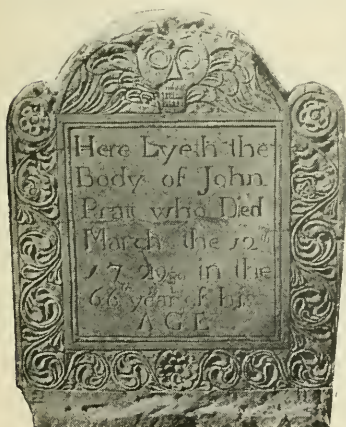 Here Lyeth the
Body of John
Pratt who Died
March the 12th
1729/30 in the
66th year of his
AGE